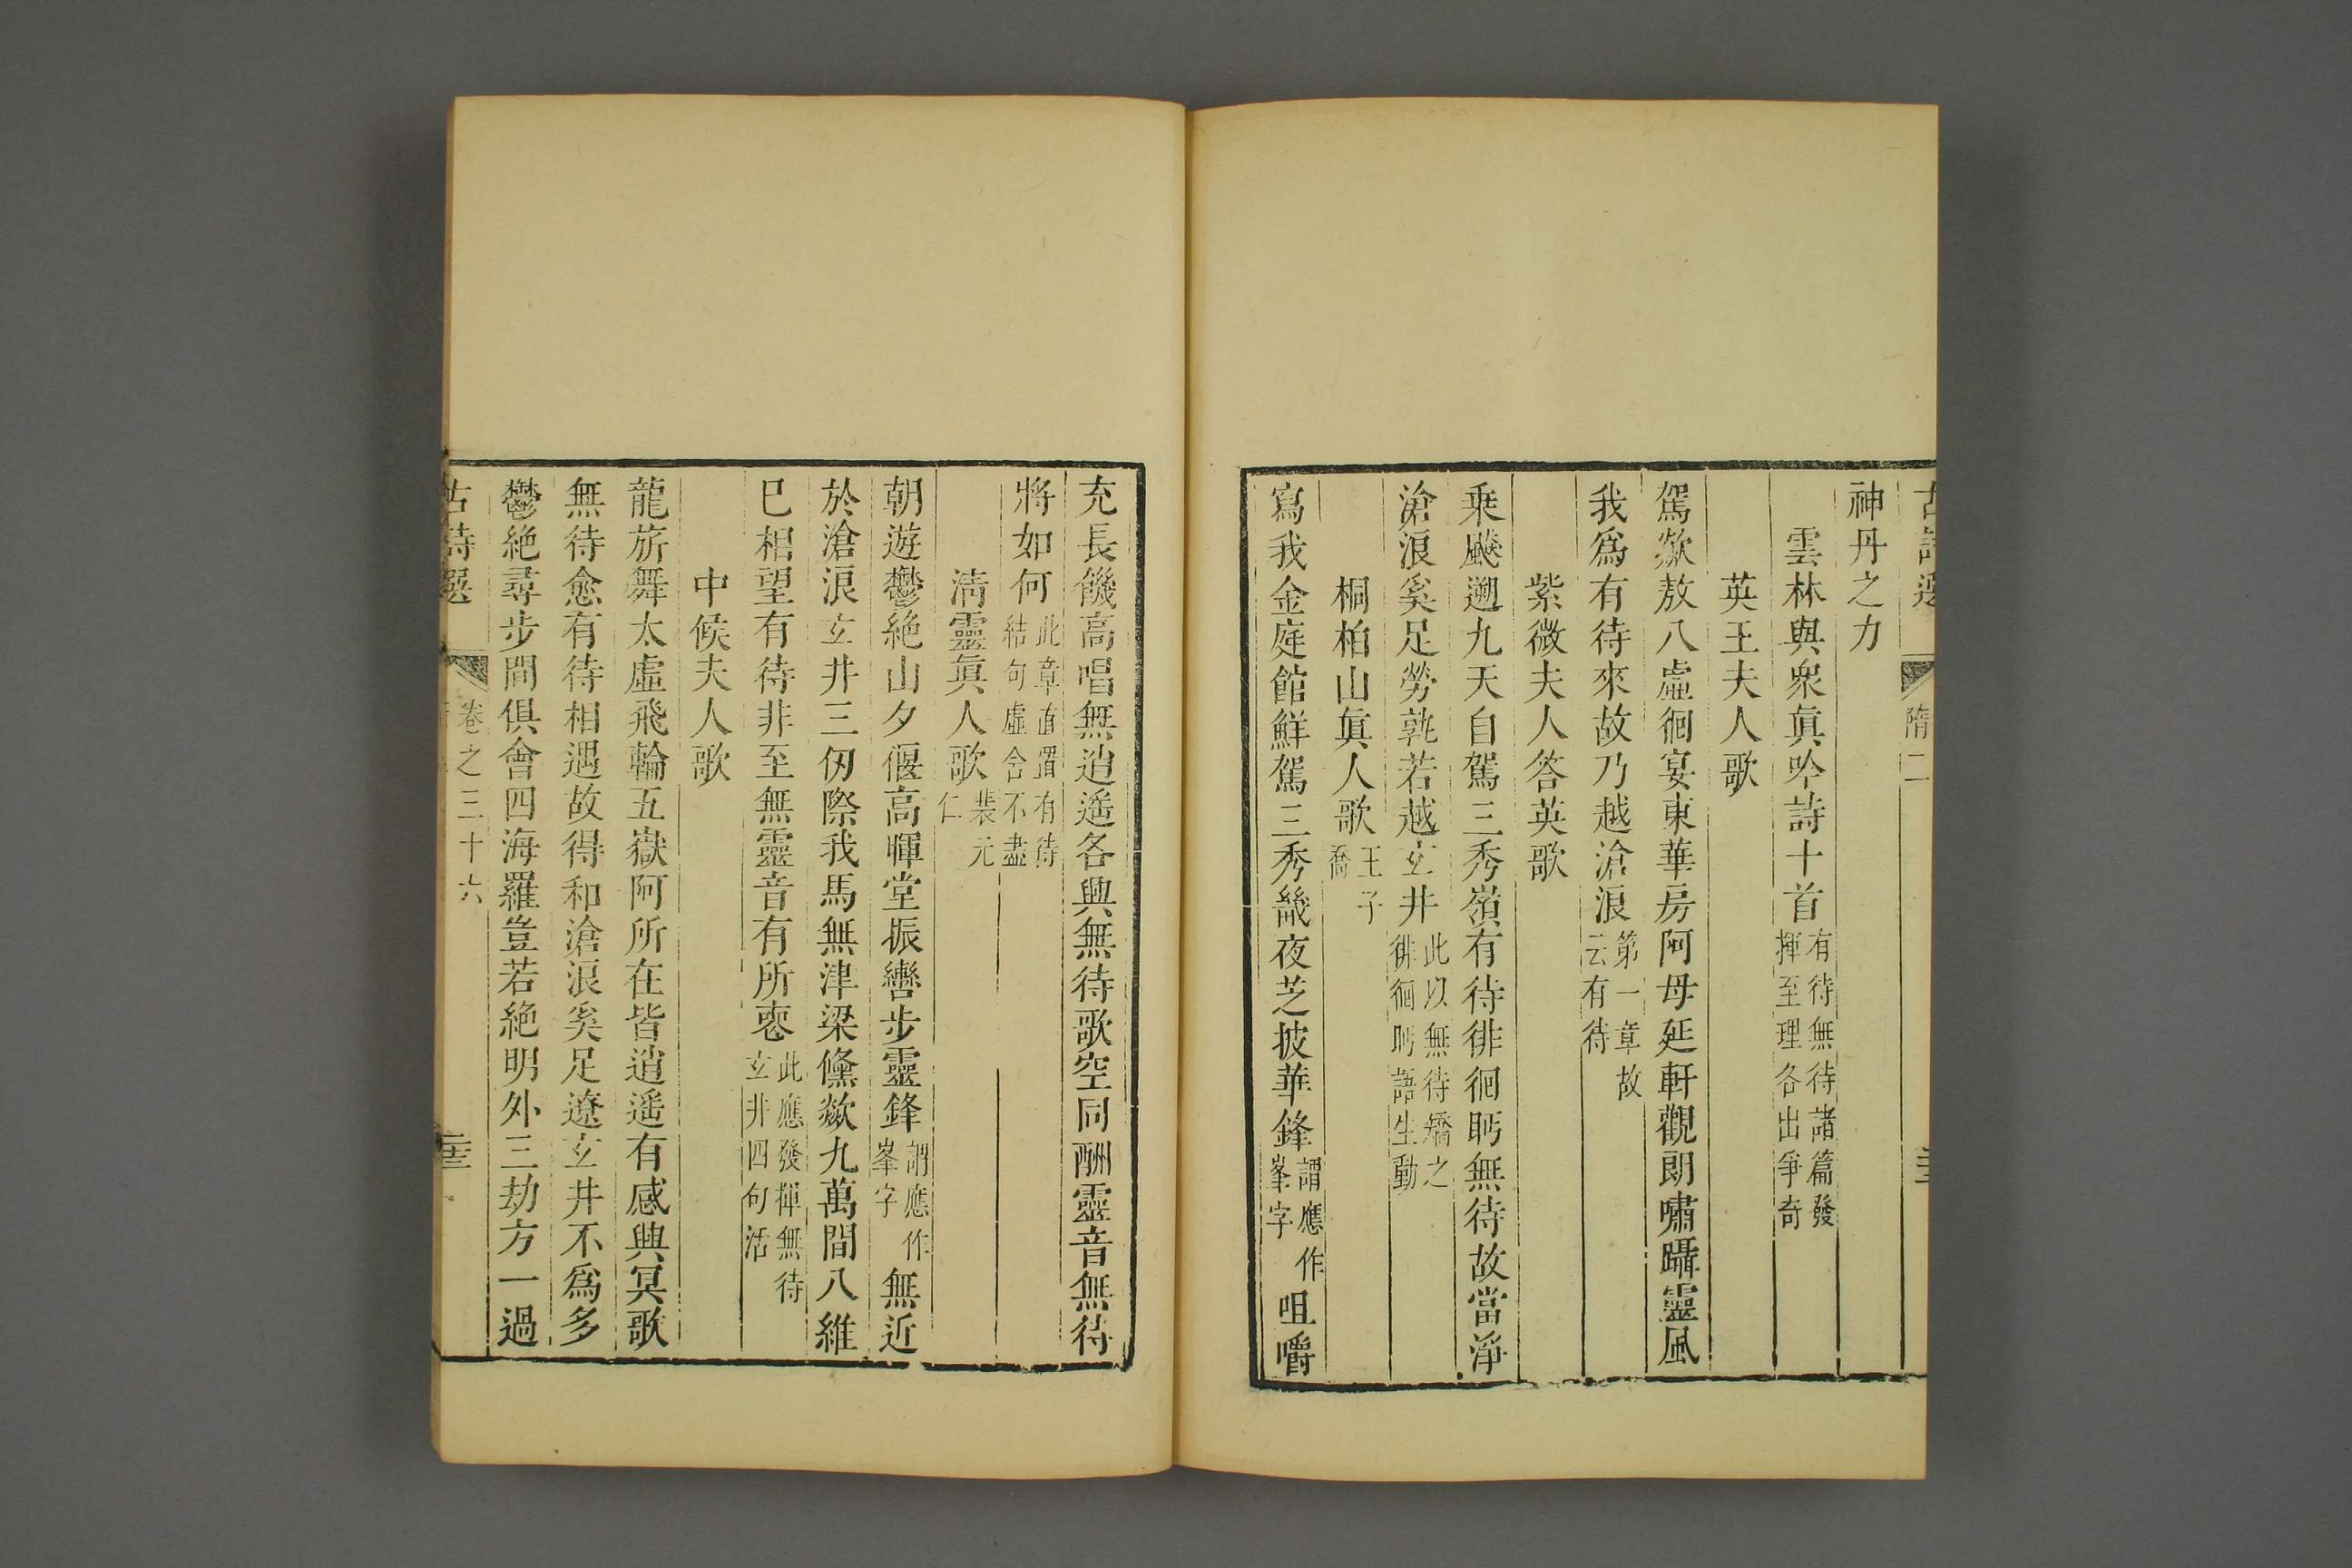 古詩選 隋二
神丹之力
雲林與衆眞吟詩十首有待無待諸篇發揮至理各出爭奇
英王夫人歌
駕欻敖八虛徊宴東華房阿母延軒觀朗嘯躡靈風
我爲有待來故乃越滄浪第一章故云有待
紫微夫人答英歌
乘飈遡九天自駕三秀嶺有待徘徊眄無待故當淨
滄浪奚足勞孰若越玄井此以無待矯之徘徊眄語生動
桐柏山眞人歌王子喬
寫我金庭館鮮駕三秀畿夜芝披華鋒謂應作峯字咀嚼
充長饑高唱無逍遥各興無待歌空同酬靈音無待
將如何此章直置有待結句虛含不盡
淸靈眞人歌裴元仁
朝遊鬱絶山夕偃高暉堂振轡步靈鋒謂應作峯字無近
於滄浪玄井三仞際我馬無津梁儵欻九萬間八維
巳相望有待非至無靈音有所䘮此應發揮無待玄井四句活
中候夫人歌
龍旂舞太虛飛輪五嶽阿所在皆逍遥有感興冥歌
無待愈有待相遇故得和滄浪奚足遼玄井不爲多
鬱絶尋步間俱會四海羅豈若絶明外三劫方一過
古詩選 卷之三十六